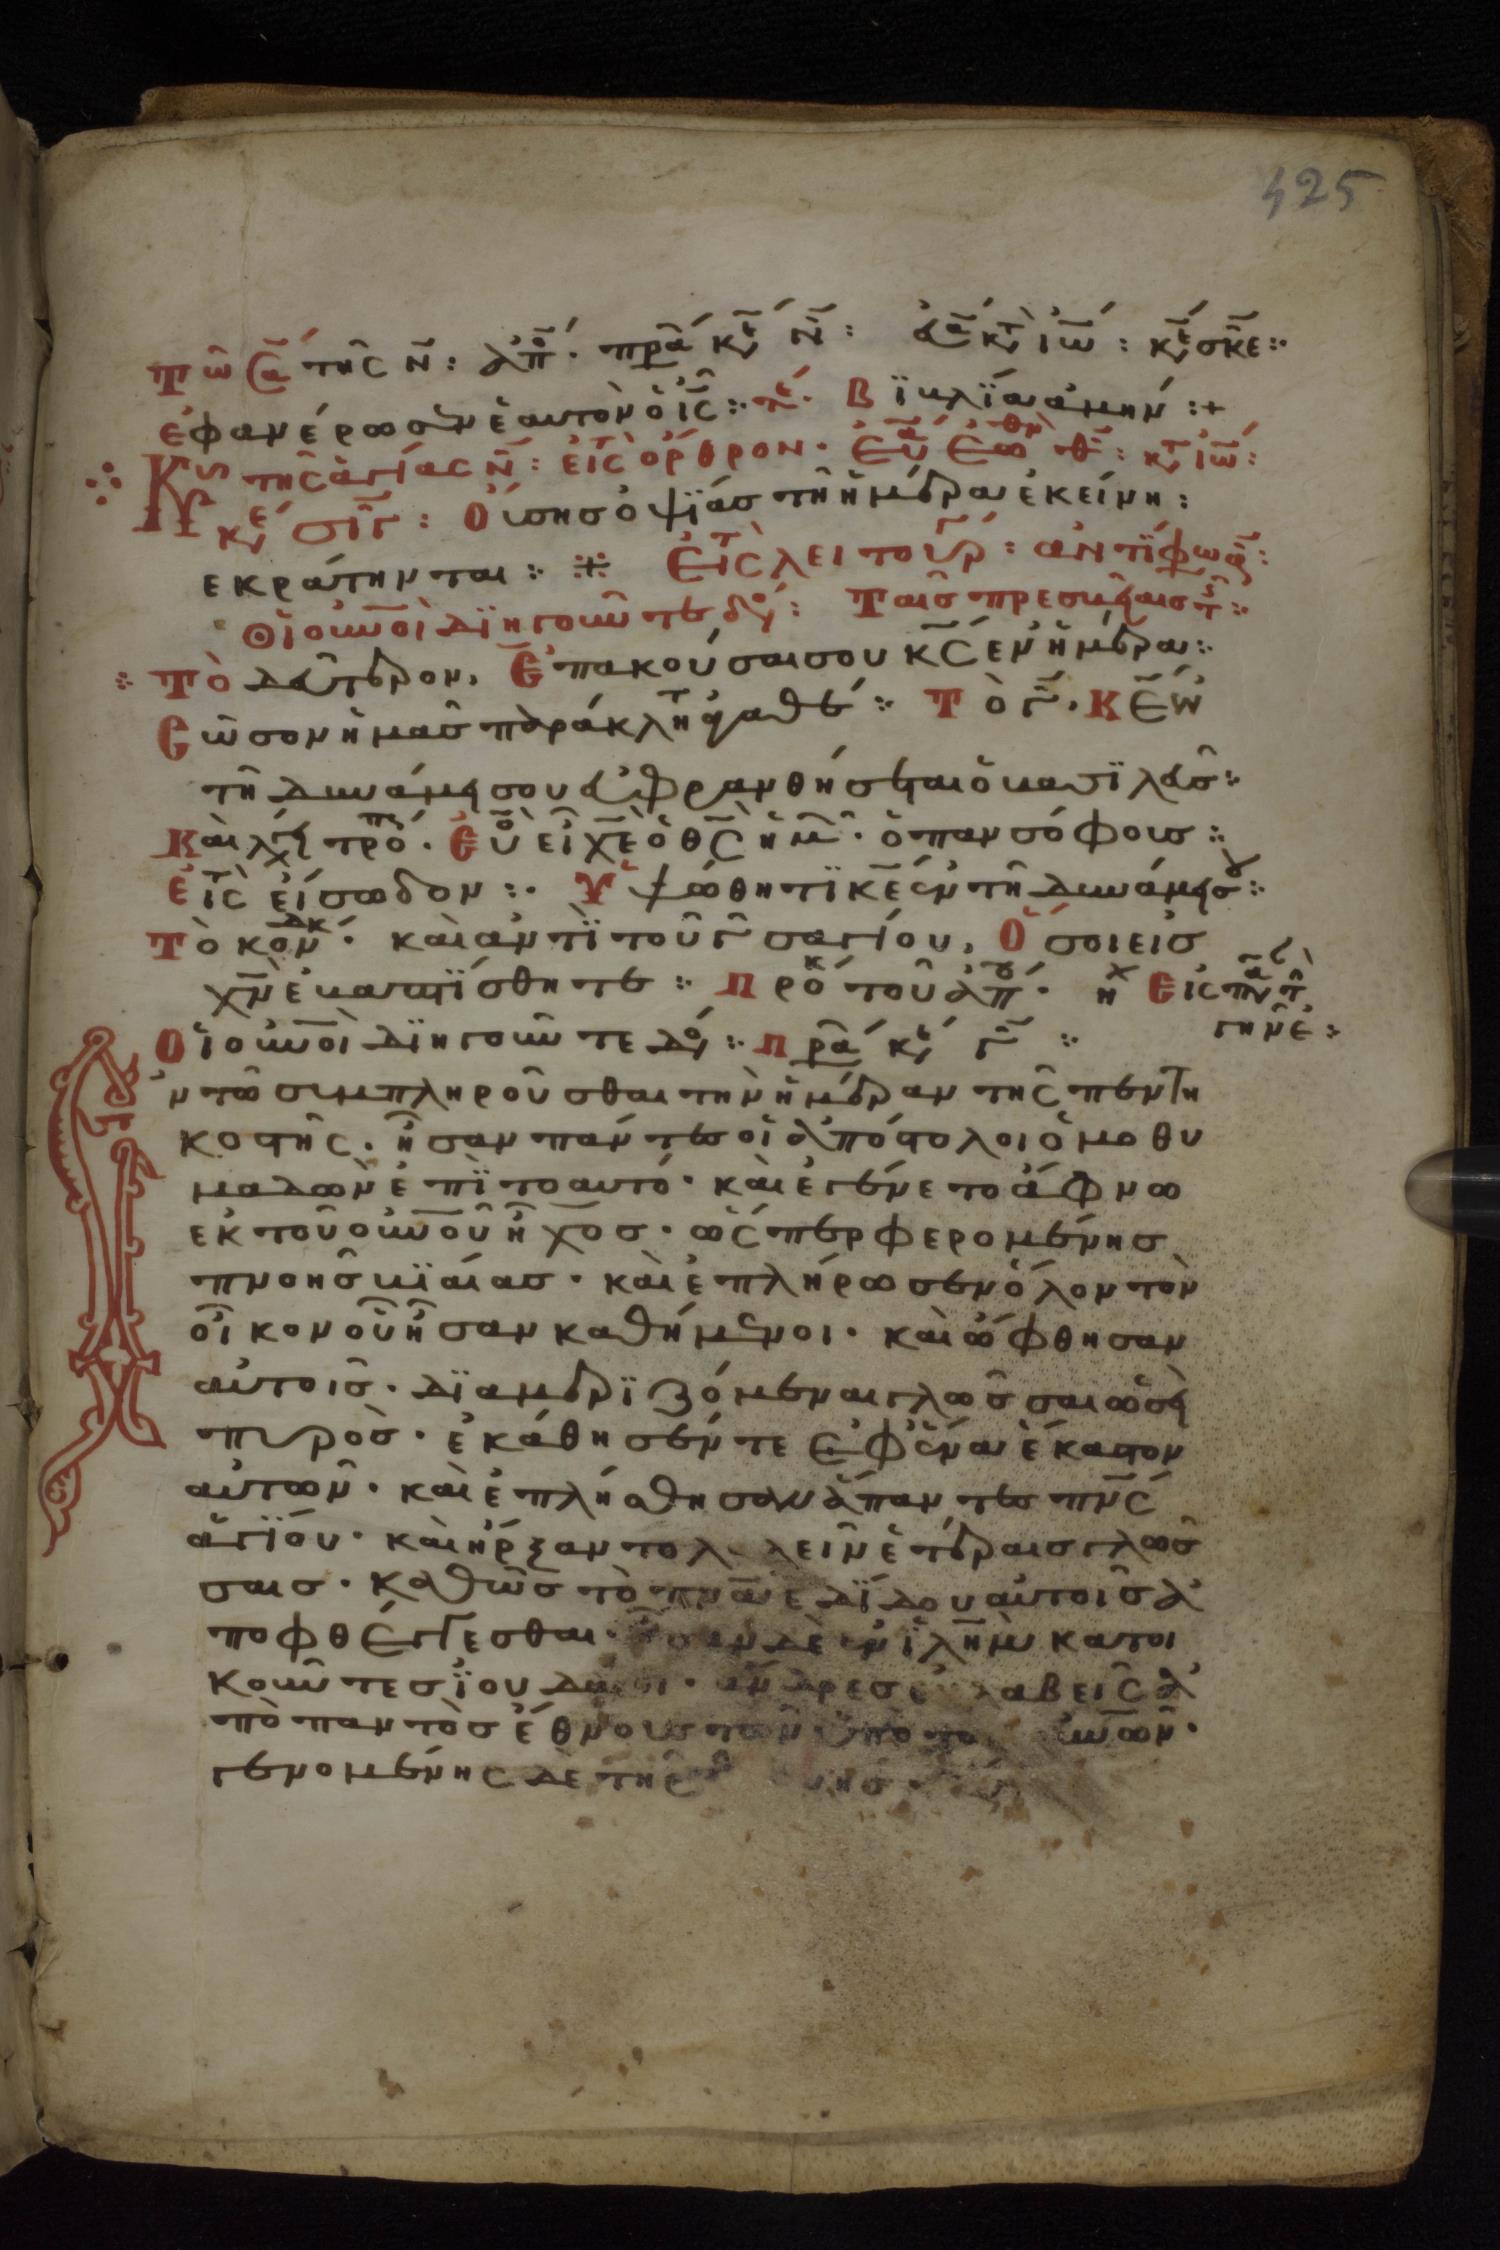 425
Τῶ Σα της ν̄: ἀπο· πρα κε ν̄: εὐα κτ ιω: κε σκε:
ἐφανέρωσεν ἑαυτὸν ὁ ις: τε· βϊβλΐα ἀμην:+
Κυ τῆς ἁγίας ν̄: εἰς τὸ ὄρθρον· εὐα ἑωθην θ: κτ ιω:
κε σιγ: Οὔσης ὀψΐας τῆ ἡμέρα ἐκείνη:
εκράτηνται: Εἰς τὴ λειτουργ: ἀντΐφωα:
Οἱ οὐνοὶ δϊηγοῦντε δο: Ταῖς πρεσβείαις τ:
Τὸ δεύτερον, Ἐπακούσαι σου κς ἐν ἡμέρα:
Σῶσον ἡμᾶς παράκλητ ἀγαθέ: Τὸ γ̄· Κε ἐν
τῆ δυνάμει σου εὐφρανθήσεται ὁ βασϊλεύς:
Καὶ λέγει τρο· Εὐο εἶ χε ὁ θς ἡμ· ὁ πανσόφους:
Εἰς τὴ εἴσωδον: Ὑψώθητϊ κε ἐν τῆ δυνάμει σου:
Τὸ κονδκ· καὶ ἀντϊ τοῦ τρισαγίου, Ὅσοι εἰς
χν ἐβαπτΐσθητε: Προκ τοῦ ἀπο· ηχ Εἰς πα τ
γην ε:
Οἱ οὐνοὶ δϊηγοῦν τε δο: πρα κε γ̄:
ν τῶ συμπληροῦσθαι τὴν ἡμέραν τῆς πεντη
κοστῆς· ἦσαν πάντες οἱ ἀπόστολοι ὁμοθυ
μαδὼν ἐπϊ το αυτό· καὶ ἐγένετο ἄφνω
εκ τοῦ οὐνοῦ ἦχος· ὥσπερ φερομένης
πνοῆς βϊαίας· καὶ ἐπλήρωσεν ὅλον τὸν
οἶκον οὗ ἦσαν καθήμενοι· καὶ ὤφθησαν
αὐτοῖς· δϊαμερϊζόμεναι γλῶσσαι ὡσεὶ
πυρὸς· ἐκάθησέν τε ἐφ ἕνα ἕκαστον
αὐτῶν· καὶ ἐπλήσθησαν ἅπαντες πνς
ἁγΐου· καὶ ἤρξαντο λαλεῖν ἑτέραις γλῶσ
σαις· καθὼς τὸ πνα ἐδΐδου αὐτοῖς ἀ
ποφθέγγεσθαι· ἦσαν δὲ ἐν ϊλημ κατοι
κοῦντες ϊουδαῖοι· ἄνδρες εὐλαβεῖς ἀ
πὸ παντὸς ἔθνους τῶν ὑπὸ τὸν οὐνῶν·
γενομένης δὲ τῆς